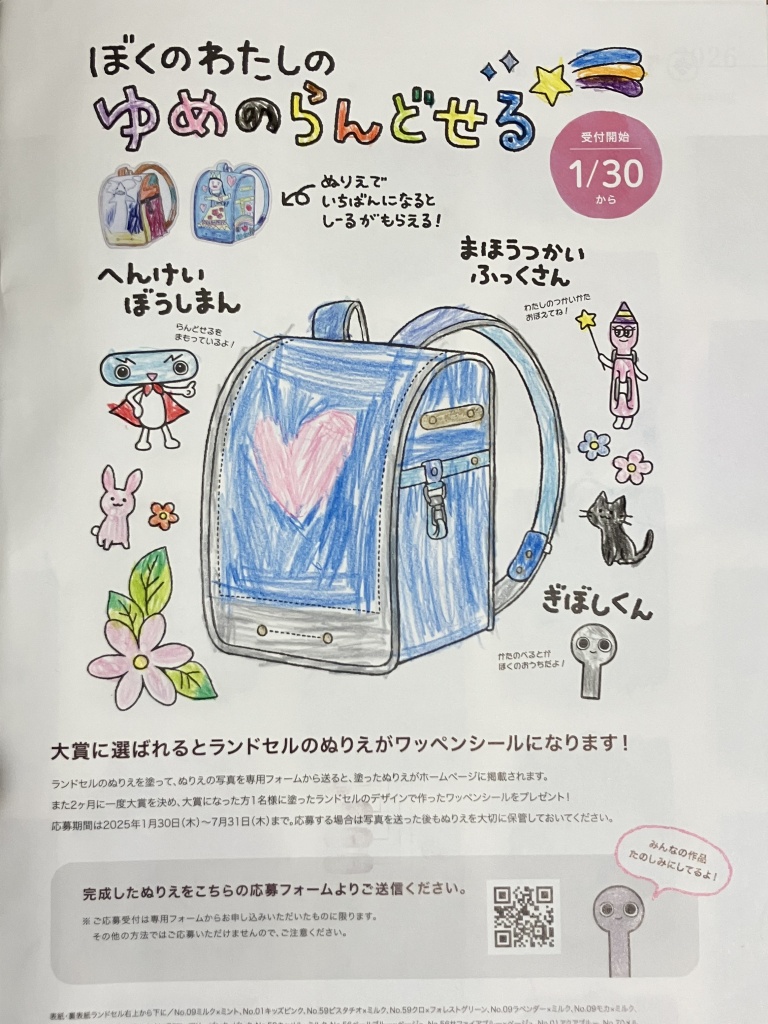 ぼくのわたしの
ゆめのらんどせる
受付開始
1/30
から
ぬりえで
いちばんになると
しーるがもらえる!
まほうつかい
ふっくさん
わたしのつかいかた
おぼえてね!
へんけい
ぼうしまん
らんどせるを
まもっているよ!
ぎぼしくん
かたのべるとが
ぼくのおうちだよ!
大賞に選ばれるとランドセルのぬりえがワッペンシールになります!
ランドセルのぬりえを塗って、ぬりえの写真を専用フォームから送ると、塗ったぬりえがホームページに掲載されます。
また2ヶ月に一度大賞を決め、大賞になった方1名様に塗ったランドセルのデザインで作ったワッペンシールをプレゼント!
応募期間は2025年1月30日(木)〜7月31日(木)まで。応募する場合は写真を送った後もぬりえを大切に保管しておいてください。
みんなの作品
たのしみにしてるよ!
完成したぬりえをこちらの応募フォームよりご送信ください。
※ご応募受付は専用フォームからお申し込みいただいたものに限ります。
その他の方法ではご応募いただけませんので、ご注意ください。
表紙・裏表紙ランドセル右上から下に/No.09ミルク×ミント、No.01キッズピンク、No.59ピスタチオ×ミルク、No.59クロ×フォレストグリーン、No.09ラベンダー×ミルク、No.09モカ×ミルク、